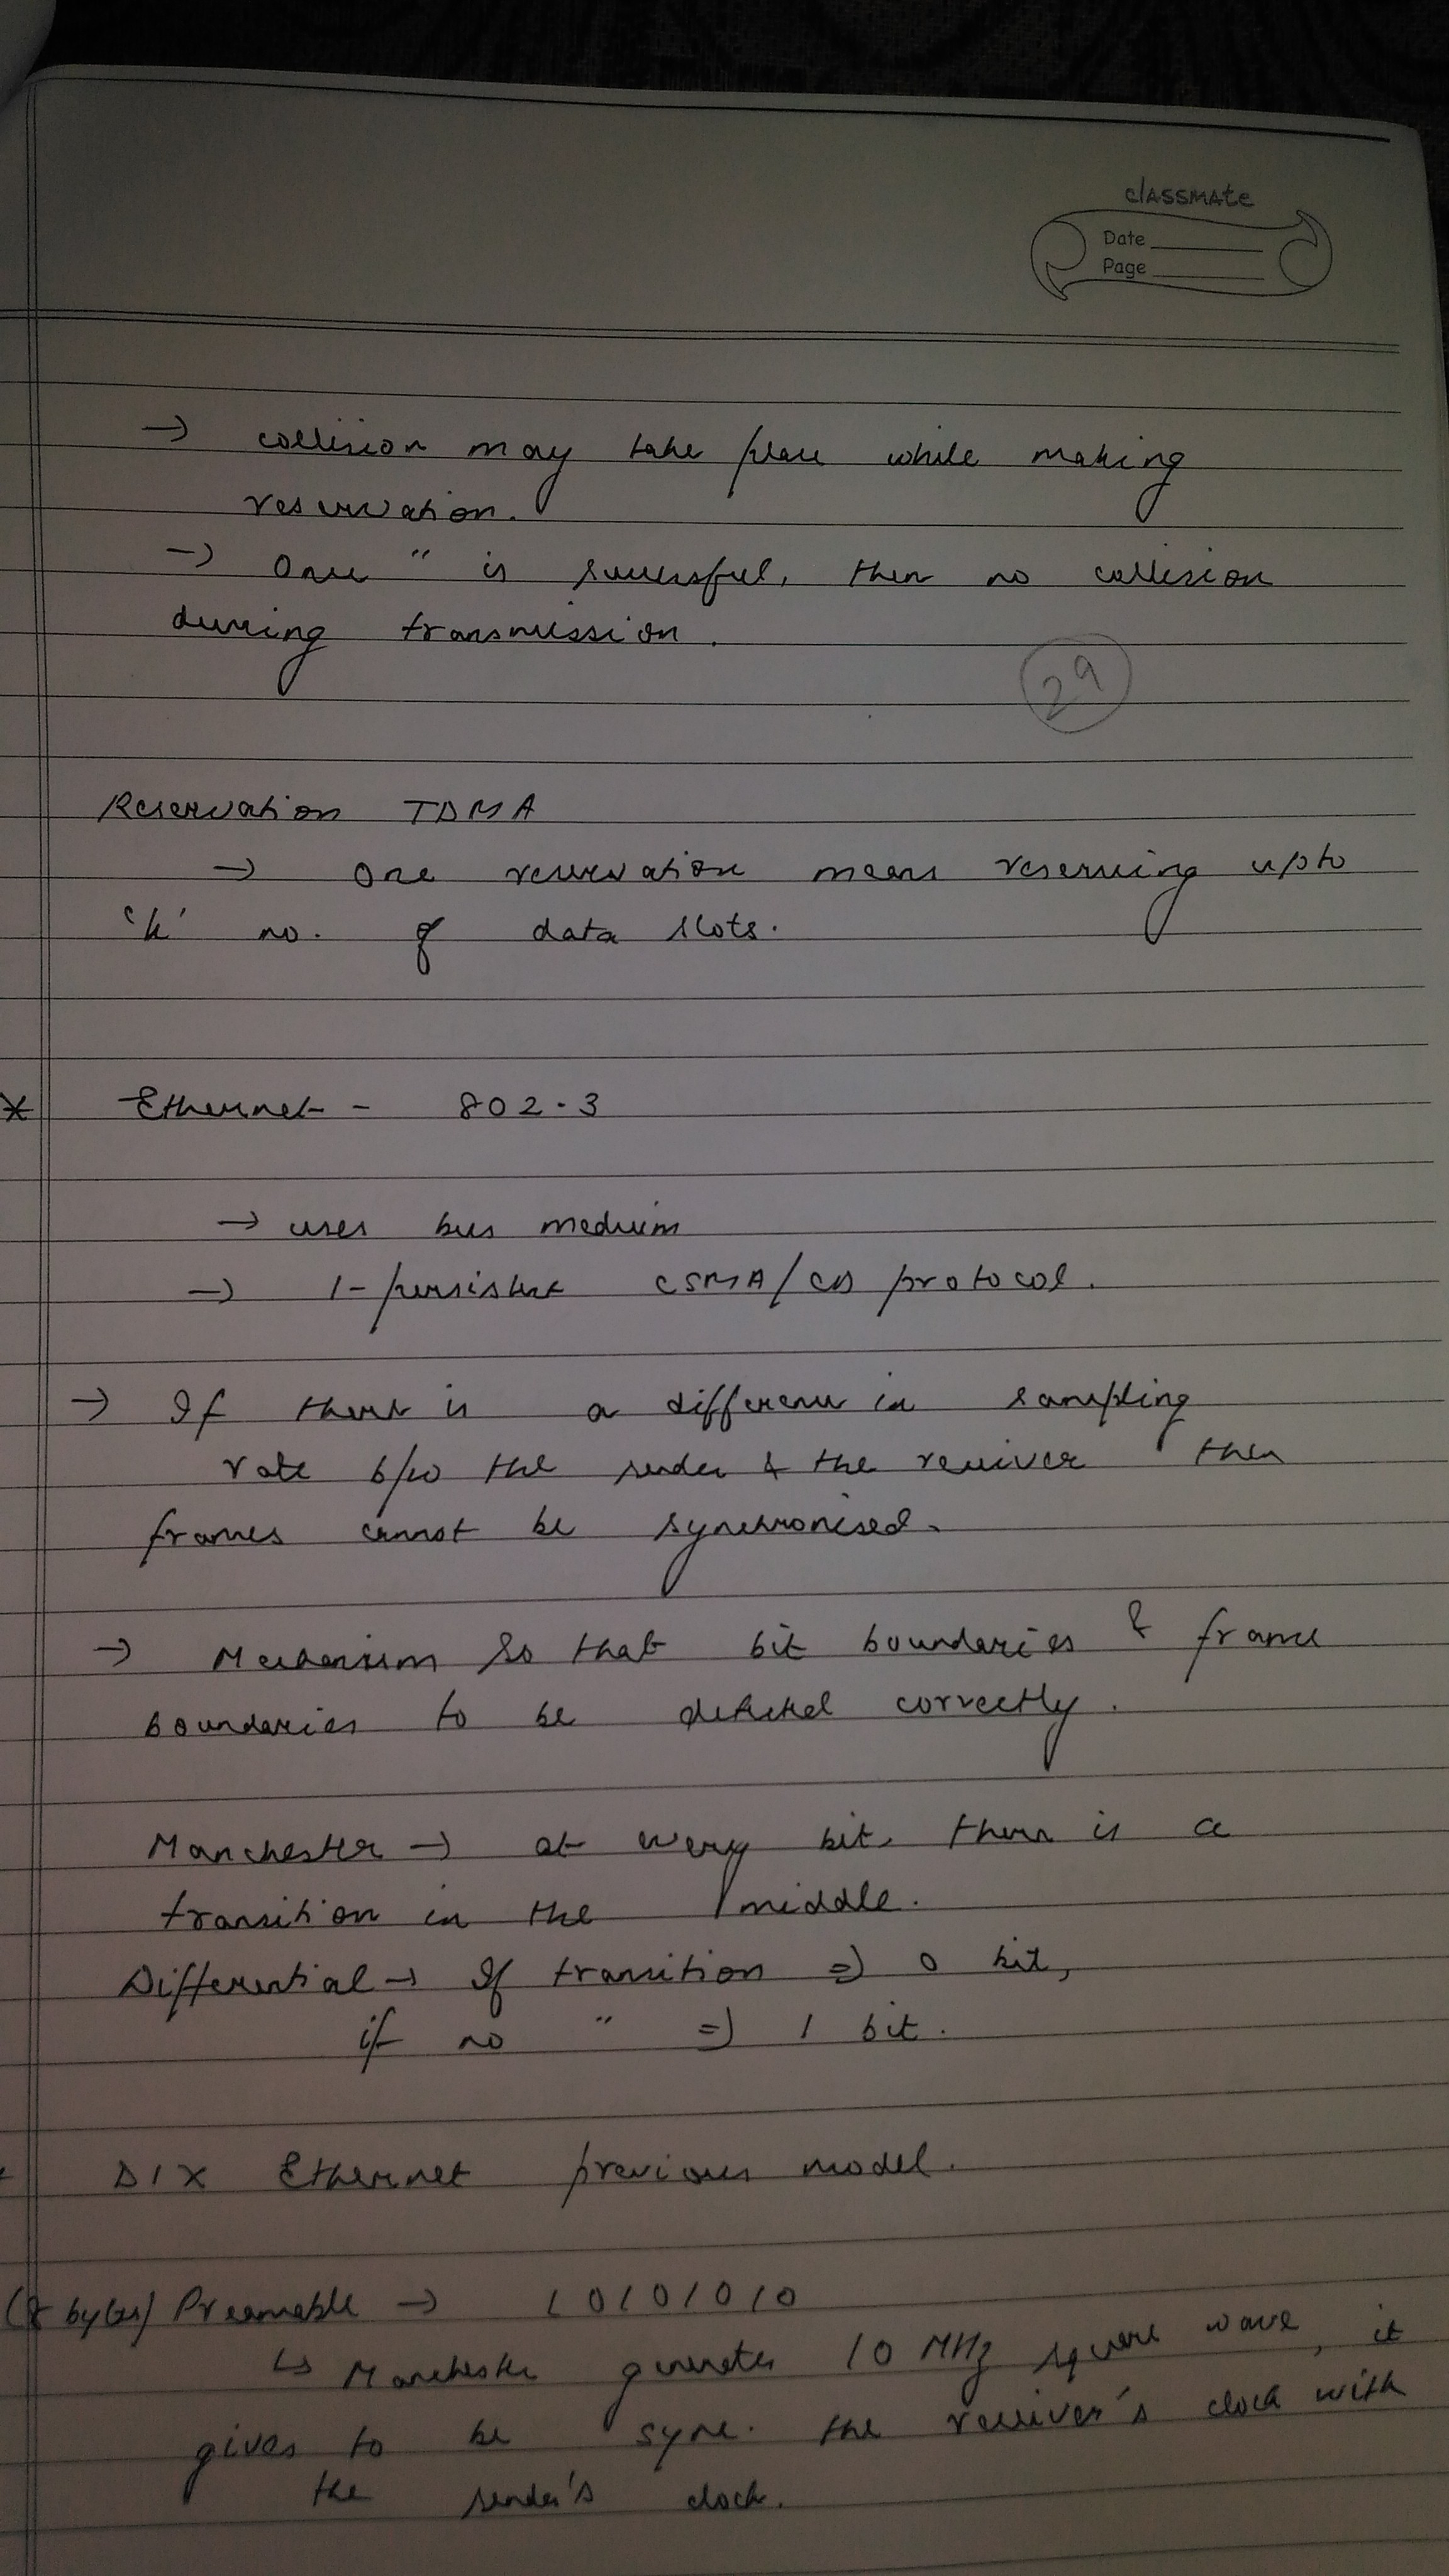 classmate
Date
Page
→ collision may take place while making
reservation.
→ Once " is successful, then no collision
during transmission.
29
Reservation TDMA
→ One reservation means reserving upto
'k' no. of data slots.
* Ethernet - 802.3
→ uses bus medium
→ 1-persistent CSMA/CD protocol.
→ If there is a difference in sampling
rate b/w the sender & the receiver then
frames cannot be synchronised.
→ Mechanism so that bit boundaries & frame
boundaries to be detected correctly.
Manchester → at every bit, there is a
transition in the middle.
Differential → If transition ⇒ 0 bit,
if no " ⇒ 1 bit.
DIX Ethernet previous model.
(8 bytes) Preamable → 10101010
↳ Manchester generates 10 MHz square wave, it
gives to be sync. the receiver's clock with
the sender's clock.